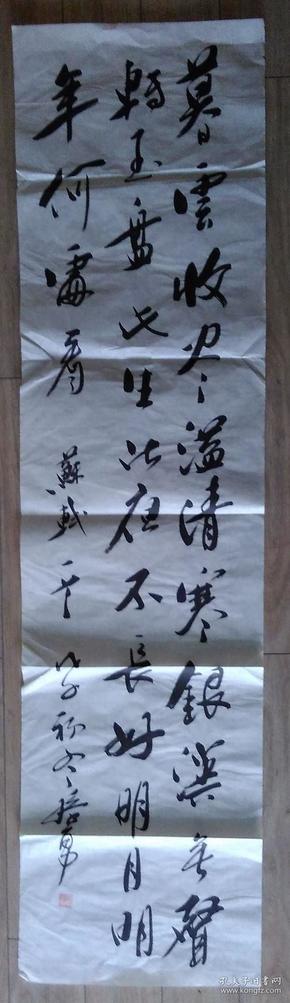 暮雲收尽溢清寒銀漢无聲
轉玉盤此生此夜不長好明月明
年何處看 蘇軾 戊子初冬
孔夫子旧书网
www.kongfz.com